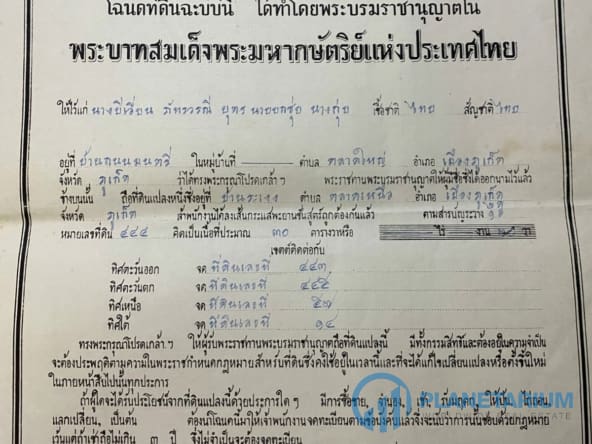 โฉนดที่ดินฉะบับนี้ ได้ทำโดยพระบรมราชานุญาตใน
พระบาทสมเด็จพระมหากษัตริย์แห่งประเทศไทย
ให้ไว้แก่ เชื้อชาติ ไทย สัญชาติ ไทย
อยู่ที่ บ้านถนนมนตรี ในหมู่บ้านที่ ตำบล ตลาดใหญ่ อำเภอ เมืองภูเก็ต
จังหวัด ภูเก็ต ว่าได้ทรงพระกรุณาโปรดเกล้าฯ พระราชทานพระบรมราชานุญาตให้ผู้มีชื่อซึ่งได้ออกนามไว้แล้ว
ข้างบนนั้น ถือที่ดินแปลงหนึ่งซึ่งอยู่ที่ ตำบล ตลาดเหนือ อำเภอ เมืองภูเก็ต
จังหวัด ภูเก็ต ลำพนักงานได้ลงเส้นกระแสพยานขึ้นสิ่งถูกต้องกันแล้ว ตามสารบัญระวาง
หมายเลขที่ดิน ๔๔๔ คิดเป็นเนื้อที่ประมาณ ๓๐ ตารางวาหรือ ไร่ งาน วา
เขตต์ติดต่อกับ
ทิศตะวันออก จด ที่ดินเลขที่ ๔๔๓
ทิศตะวันตก จด ที่ดินเลขที่ ๔๔๕
ทิศเหนือ จด ที่ดินเลขที่
ทิศใต้ จด ที่ดินเลขที่ ๑๔
ทรงพระกรุณาโปรดเกล้าฯ ให้ผู้รับพระราชทานพระบรมราชานุญาตถือที่ดินแปลงนี้ มีทั้งกรรมสิทธิ์และต้องอยู่ในความจำเป็น
จะต้องประพฤติตามความในพระราชกำหนดกฎหมายสำหรับที่ดินซึ่งคงใช้อยู่ในเวลานี้และที่จะได้แก้ไขเปลี่ยนแปลงหรือตั้งขึ้นใหม่
ในภายหน้าสืบไปนั้นทุกประการ
ถ้าผู้ใดจะได้รับประโยชน์จากที่ดินแปลงนี้ด้วยประการใดๆ มีการซื้อขาย, จำนอง, เช่า, รับมฤดก, ให้ปัน, ไถ่ถอน,
แลกเปลี่ยน, เป็นต้น ต้องนำโฉนดนี้มาให้เจ้าพนักงานจดทะเบียนตามข้อบังคับแล้วจึ่งจะนับว่าการนั้นชอบด้วยกฎหมาย
เว้นแต่ถ้าเช่าถือไม่เกิน ๓ ปี จึ่งไม่จำเป็นจะต้องจดทะเบียน
PLANETARIUM